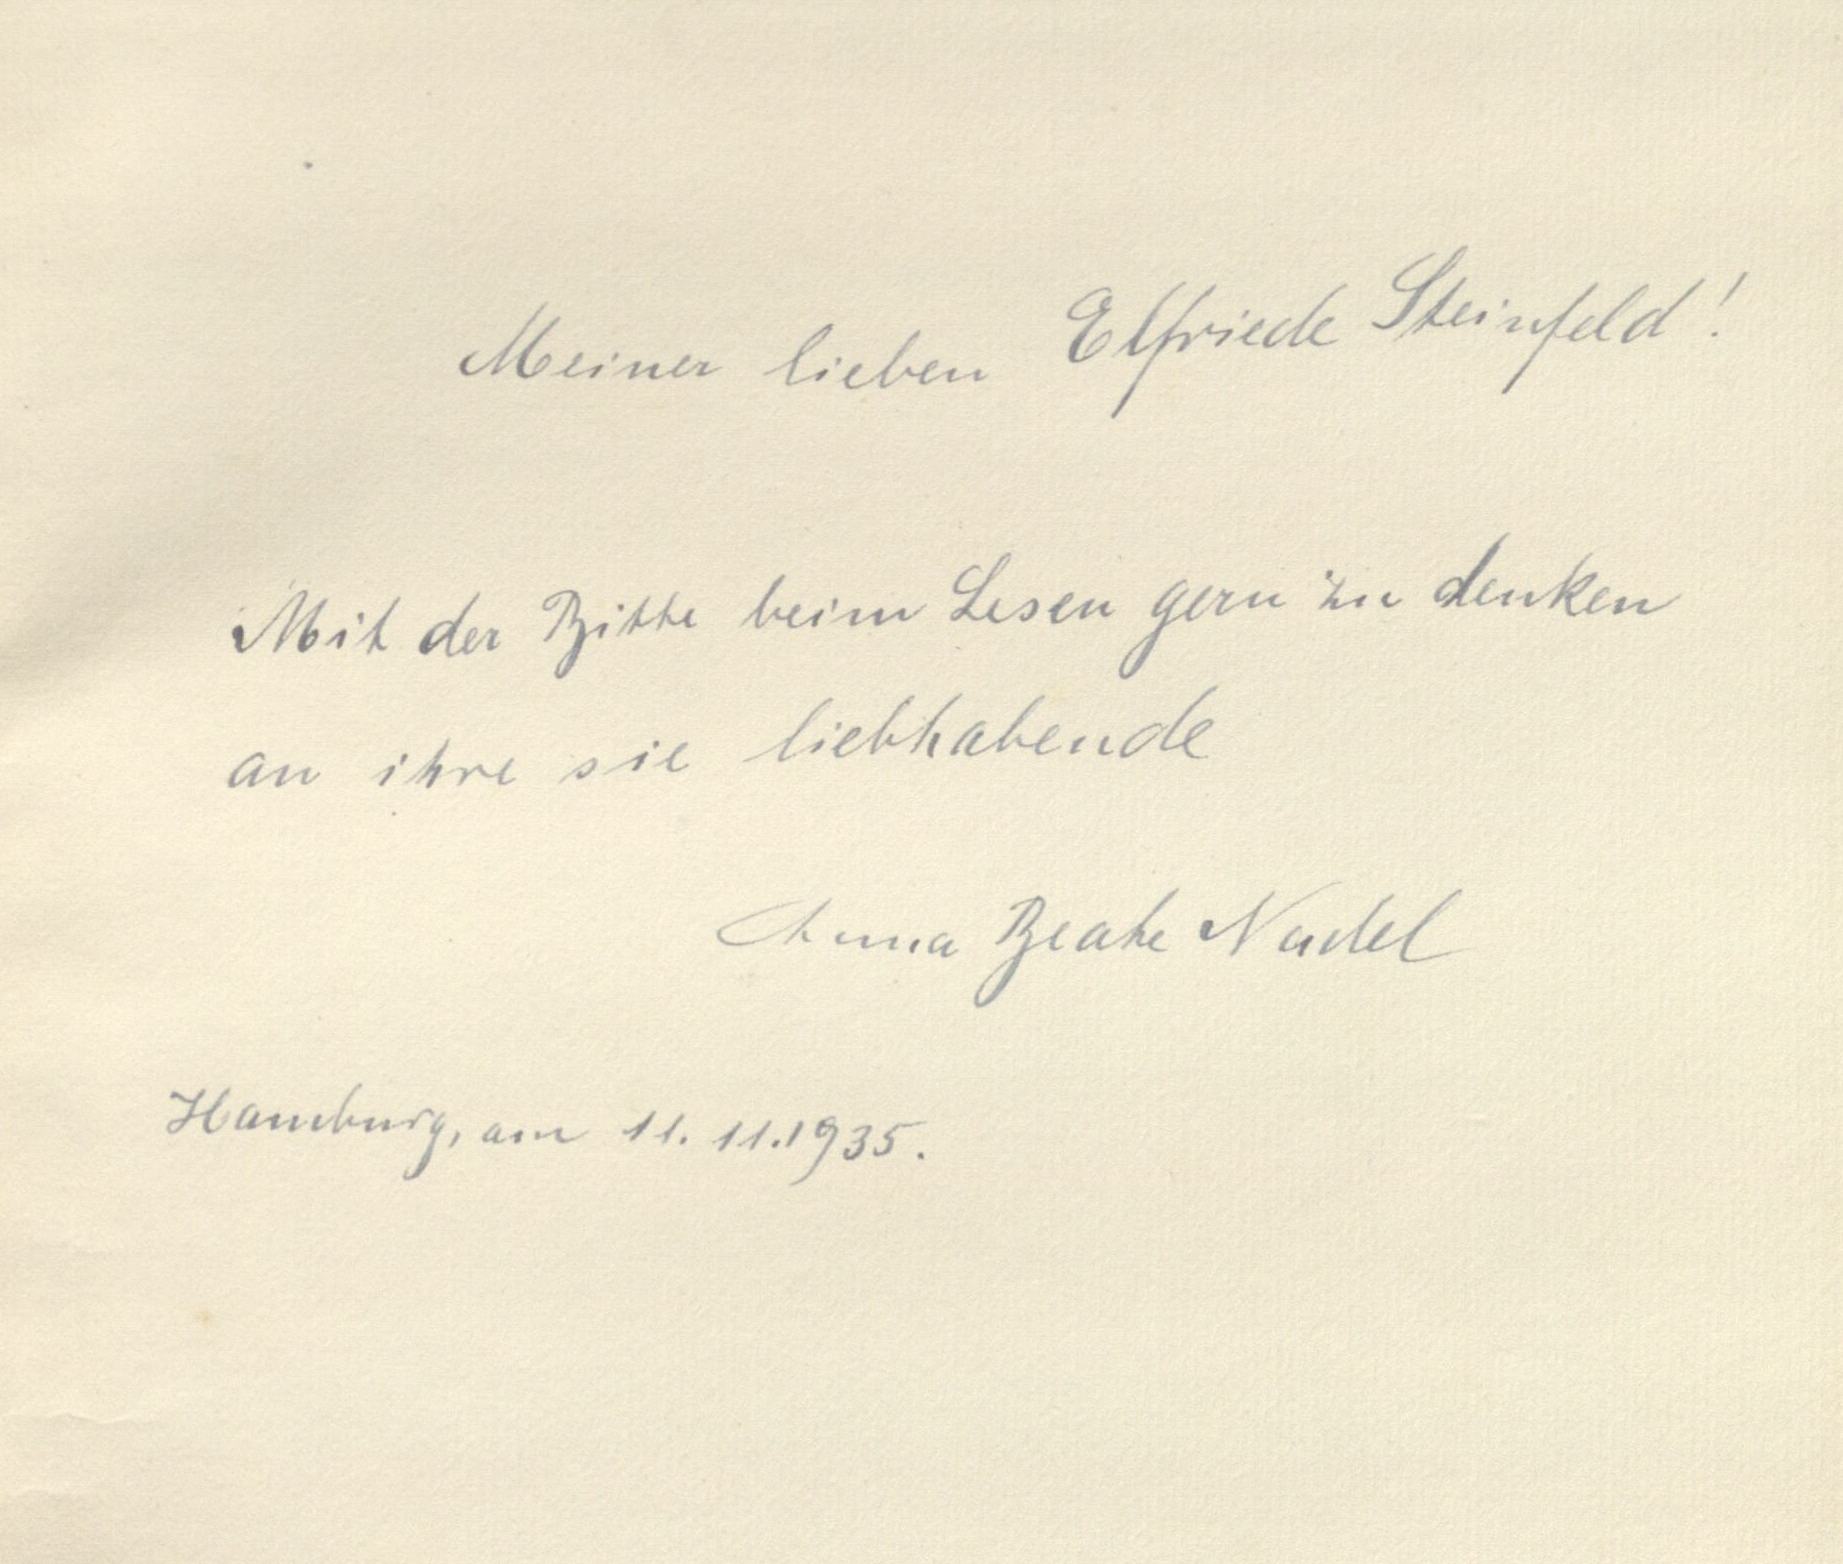 Meiner lieben Elfriede Steinfeld!
Mit der Bitte beim Lesen gern zu denken
an ihre sie liebhabende
Anna Beate Nadel
Hamburg, am 11.11.1935.